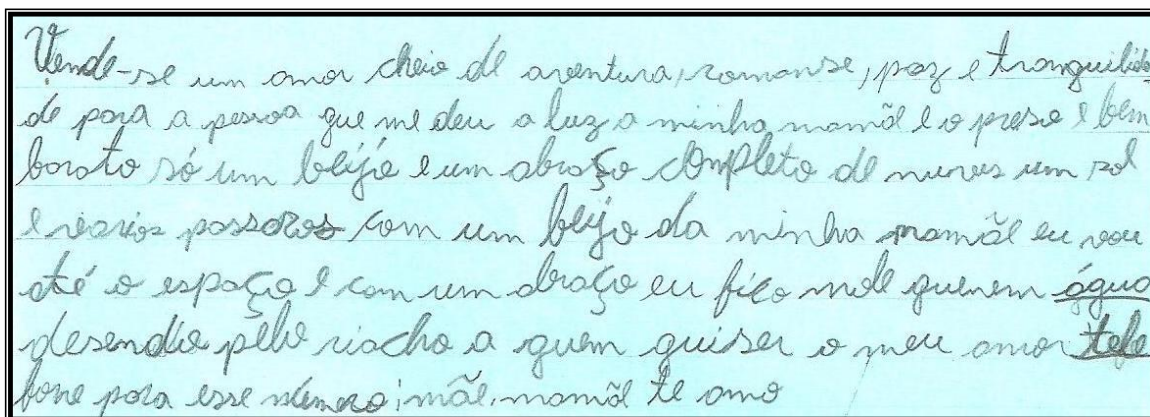 Vende-se um amor cheio de aventura, romanse, paz e tranquilida
de para a pessoa que me deu a luz a minha mamãe e o preso e bem
barato só um beijo e um abraço completo de nuves um sol
e varios passaros com um beijo da minha mamãe eu vou
até o espaço e com um abraço eu fico mole quenem água
desendo pelo riacho a quem quiser o meu amor tele
fone para esse número: mãe.mamãe te amo